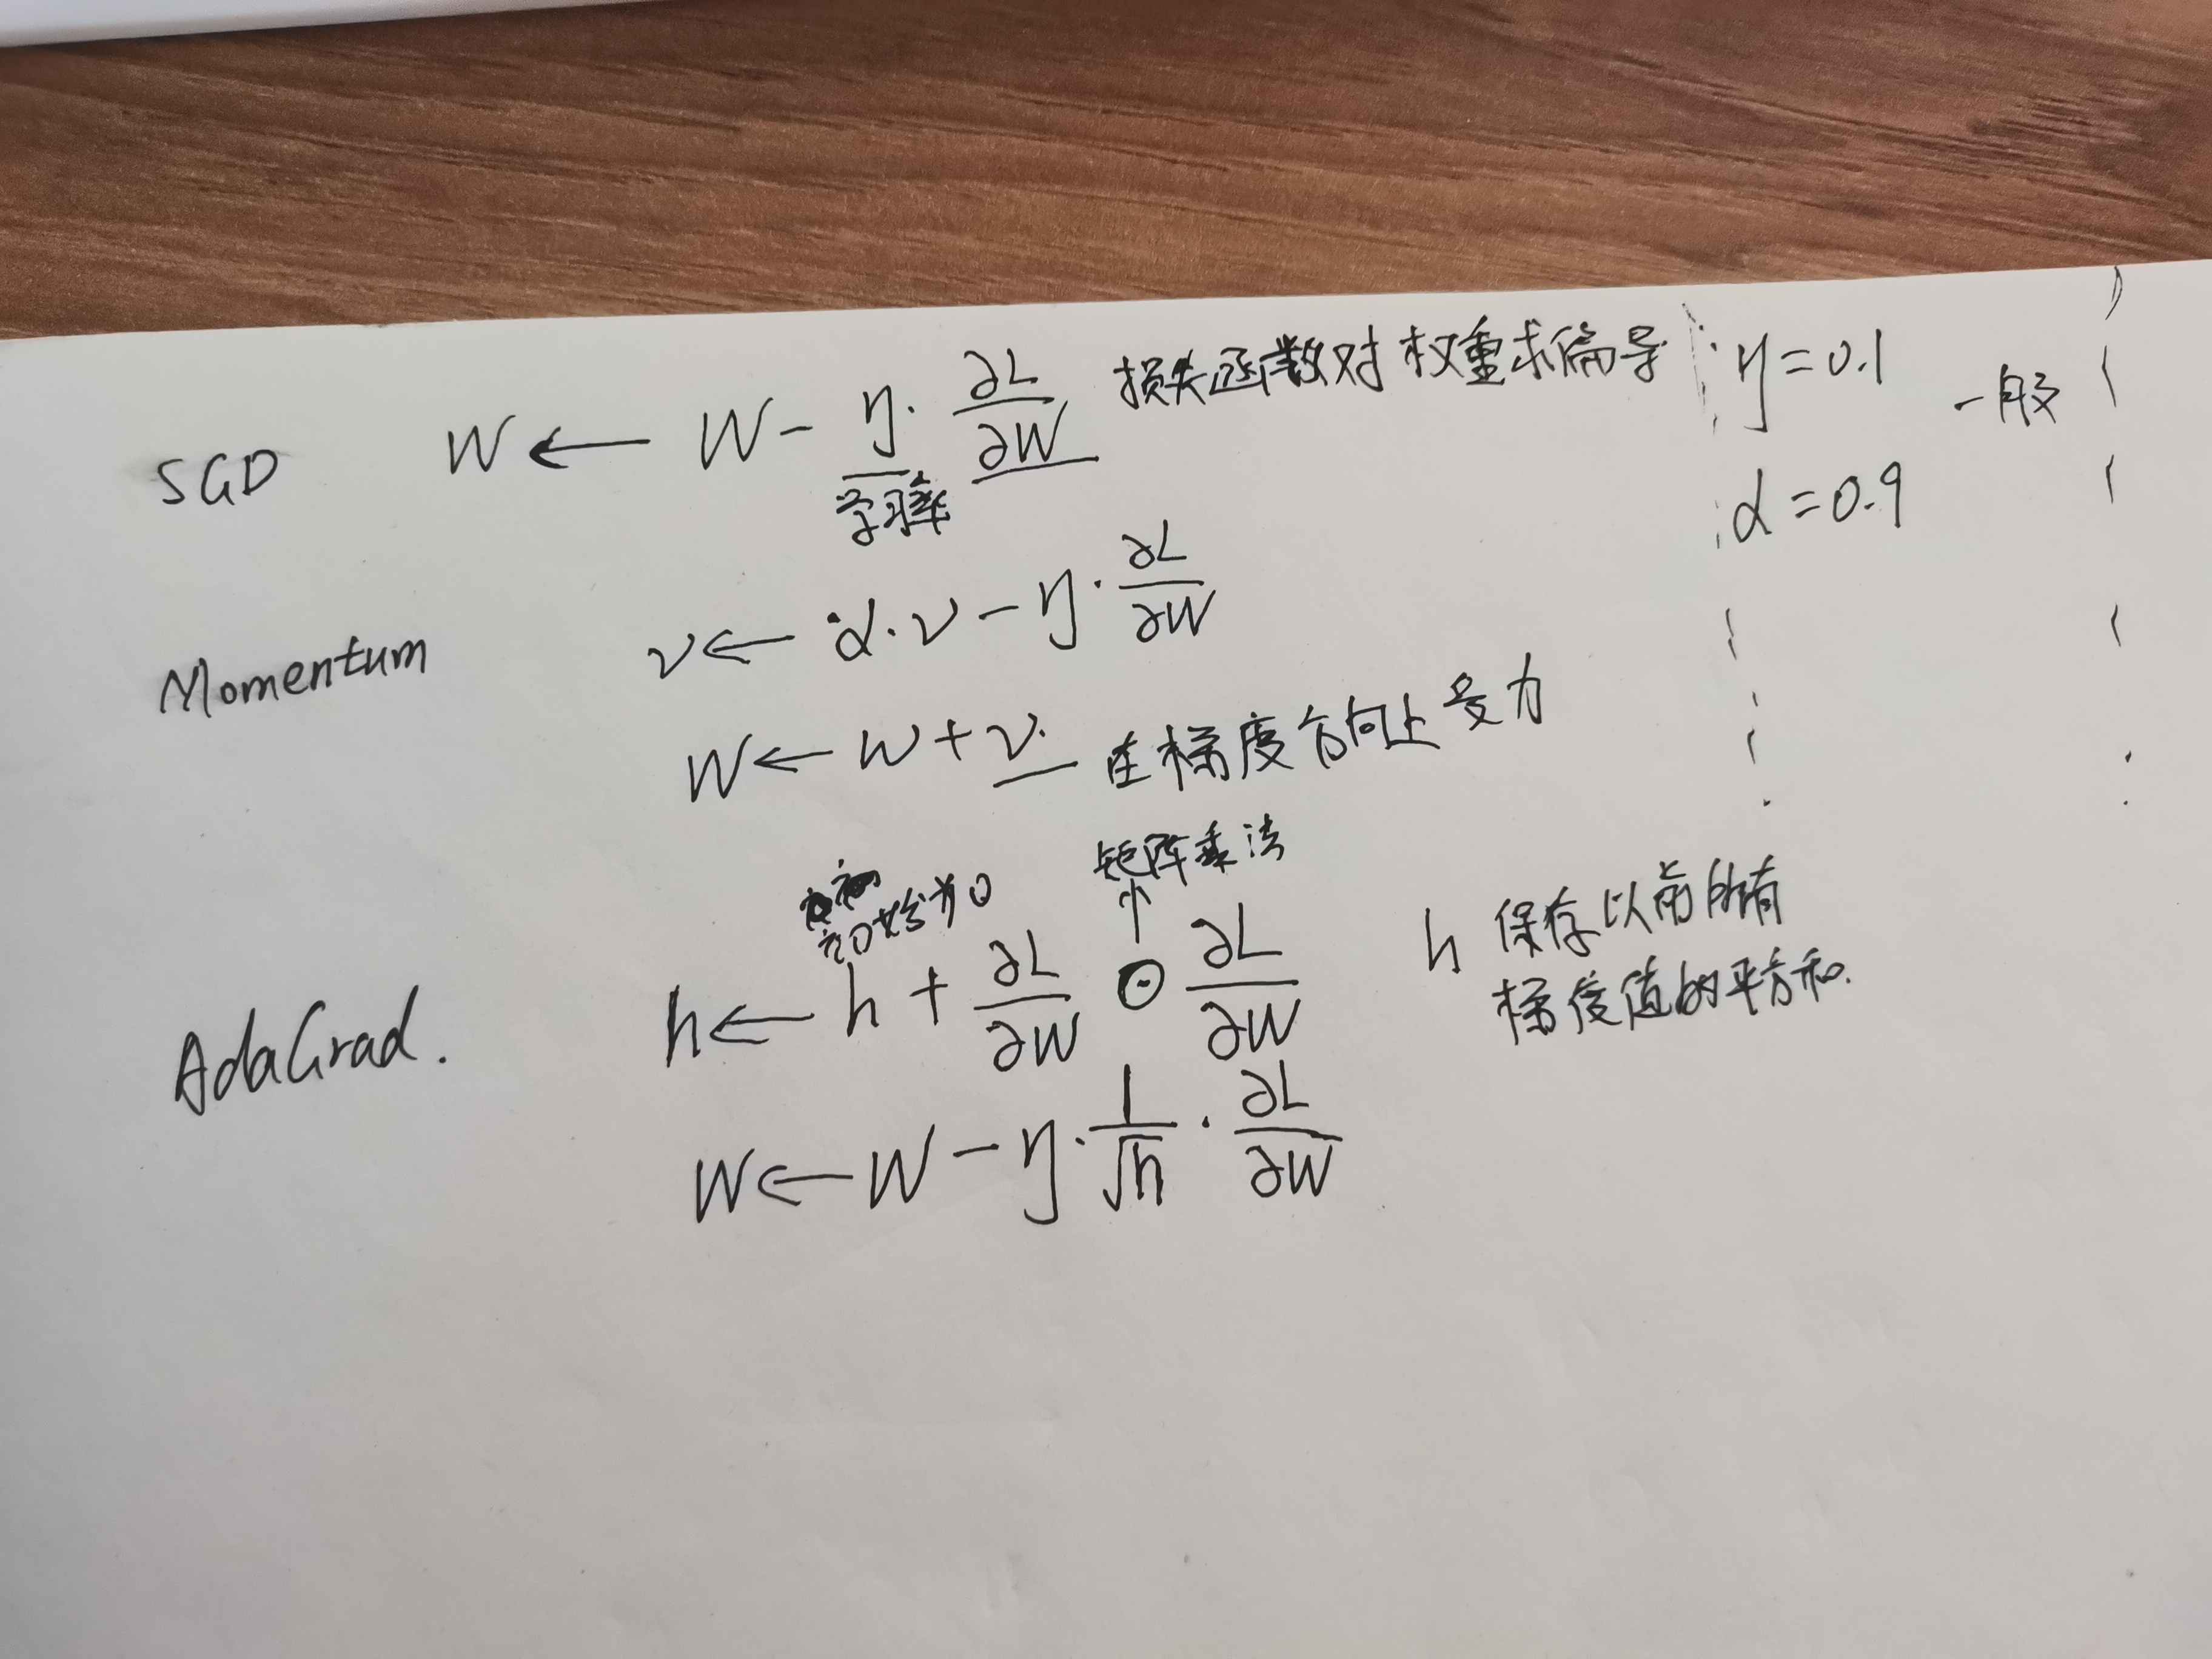 SGD W ← W - η · ∂L/∂W 损失函数对权重求偏导 η = 0.1 一般
学习率 α = 0.9
Momentum ν ← α · ν - η · ∂L/∂W
W ← W + ν. 在梯度方向上受力
矩阵乘法
初始为0
AdaGrad. h ← h + ∂L/∂W ⊙ ∂L/∂W h 保存以前所有
梯度值的平方和.
W ← W - η · 1/√h · ∂L/∂W